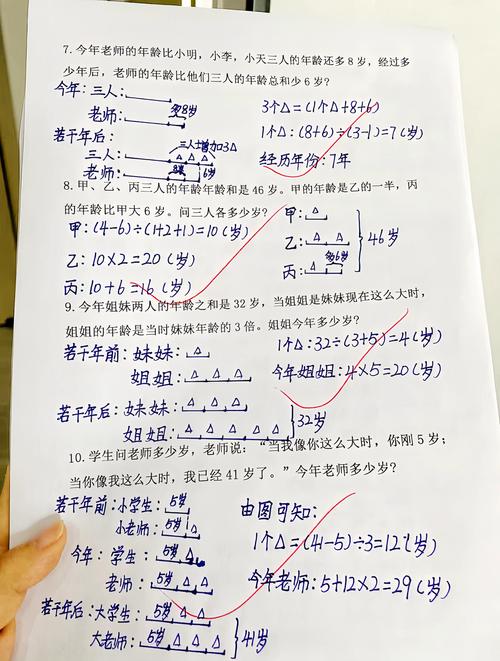 7. 今年老师的年龄比小明，小李，小天三人的年龄还多8岁，经过多
少年后，老师的年龄比他们三人的年龄总和少6岁？
今年：三人：
老师： 多8岁
3个△=(1个△+8+6)
若干年后：
1个△：(8+6)÷(3-1)=7(岁)
三人增加3△
三人：
△ △ △
经历年份：7年
老师：
8岁 △ 6岁
8. 甲、乙、丙三人的年龄年龄和是46岁。甲的年龄是乙的一半，丙
的年龄比甲大6岁。问三人各多少岁？
甲：△
甲：(46-6)÷(1+2+1)=10(岁)
乙：△ △
46岁
乙：10×2=20(岁)
多6岁
丙：△
丙：10+6=16(岁)
9. 今年姐妹两人的年龄之和是32岁，当姐姐是妹妹现在这么大时，
姐姐的年龄是当时妹妹年龄的3倍。姐姐今年多少岁？
若干年前：妹妹：△
1个△：32÷(3+5)=4(岁)
姐姐：△ △ △
今年姐姐：4×5=20(岁)
若干年后：妹妹：△ △ △
32岁
姐姐：△ △ △ △ △
10. 学生问老师多少岁，老师说：“当我像你这么大时，你刚5岁；
当你像我这么大时，我已经41岁了。”今年老师多少岁？
若干年前：小学生：5岁
由图可知：
小老师：5岁 △
1个△=(41-5)÷3=12(岁)
今年：学生：5岁 △
老师：5岁 △ △
今年老师：5+12×2=29(岁)
若干年后：大学生：5岁 △ △
41岁
大老师：5岁 △ △ △